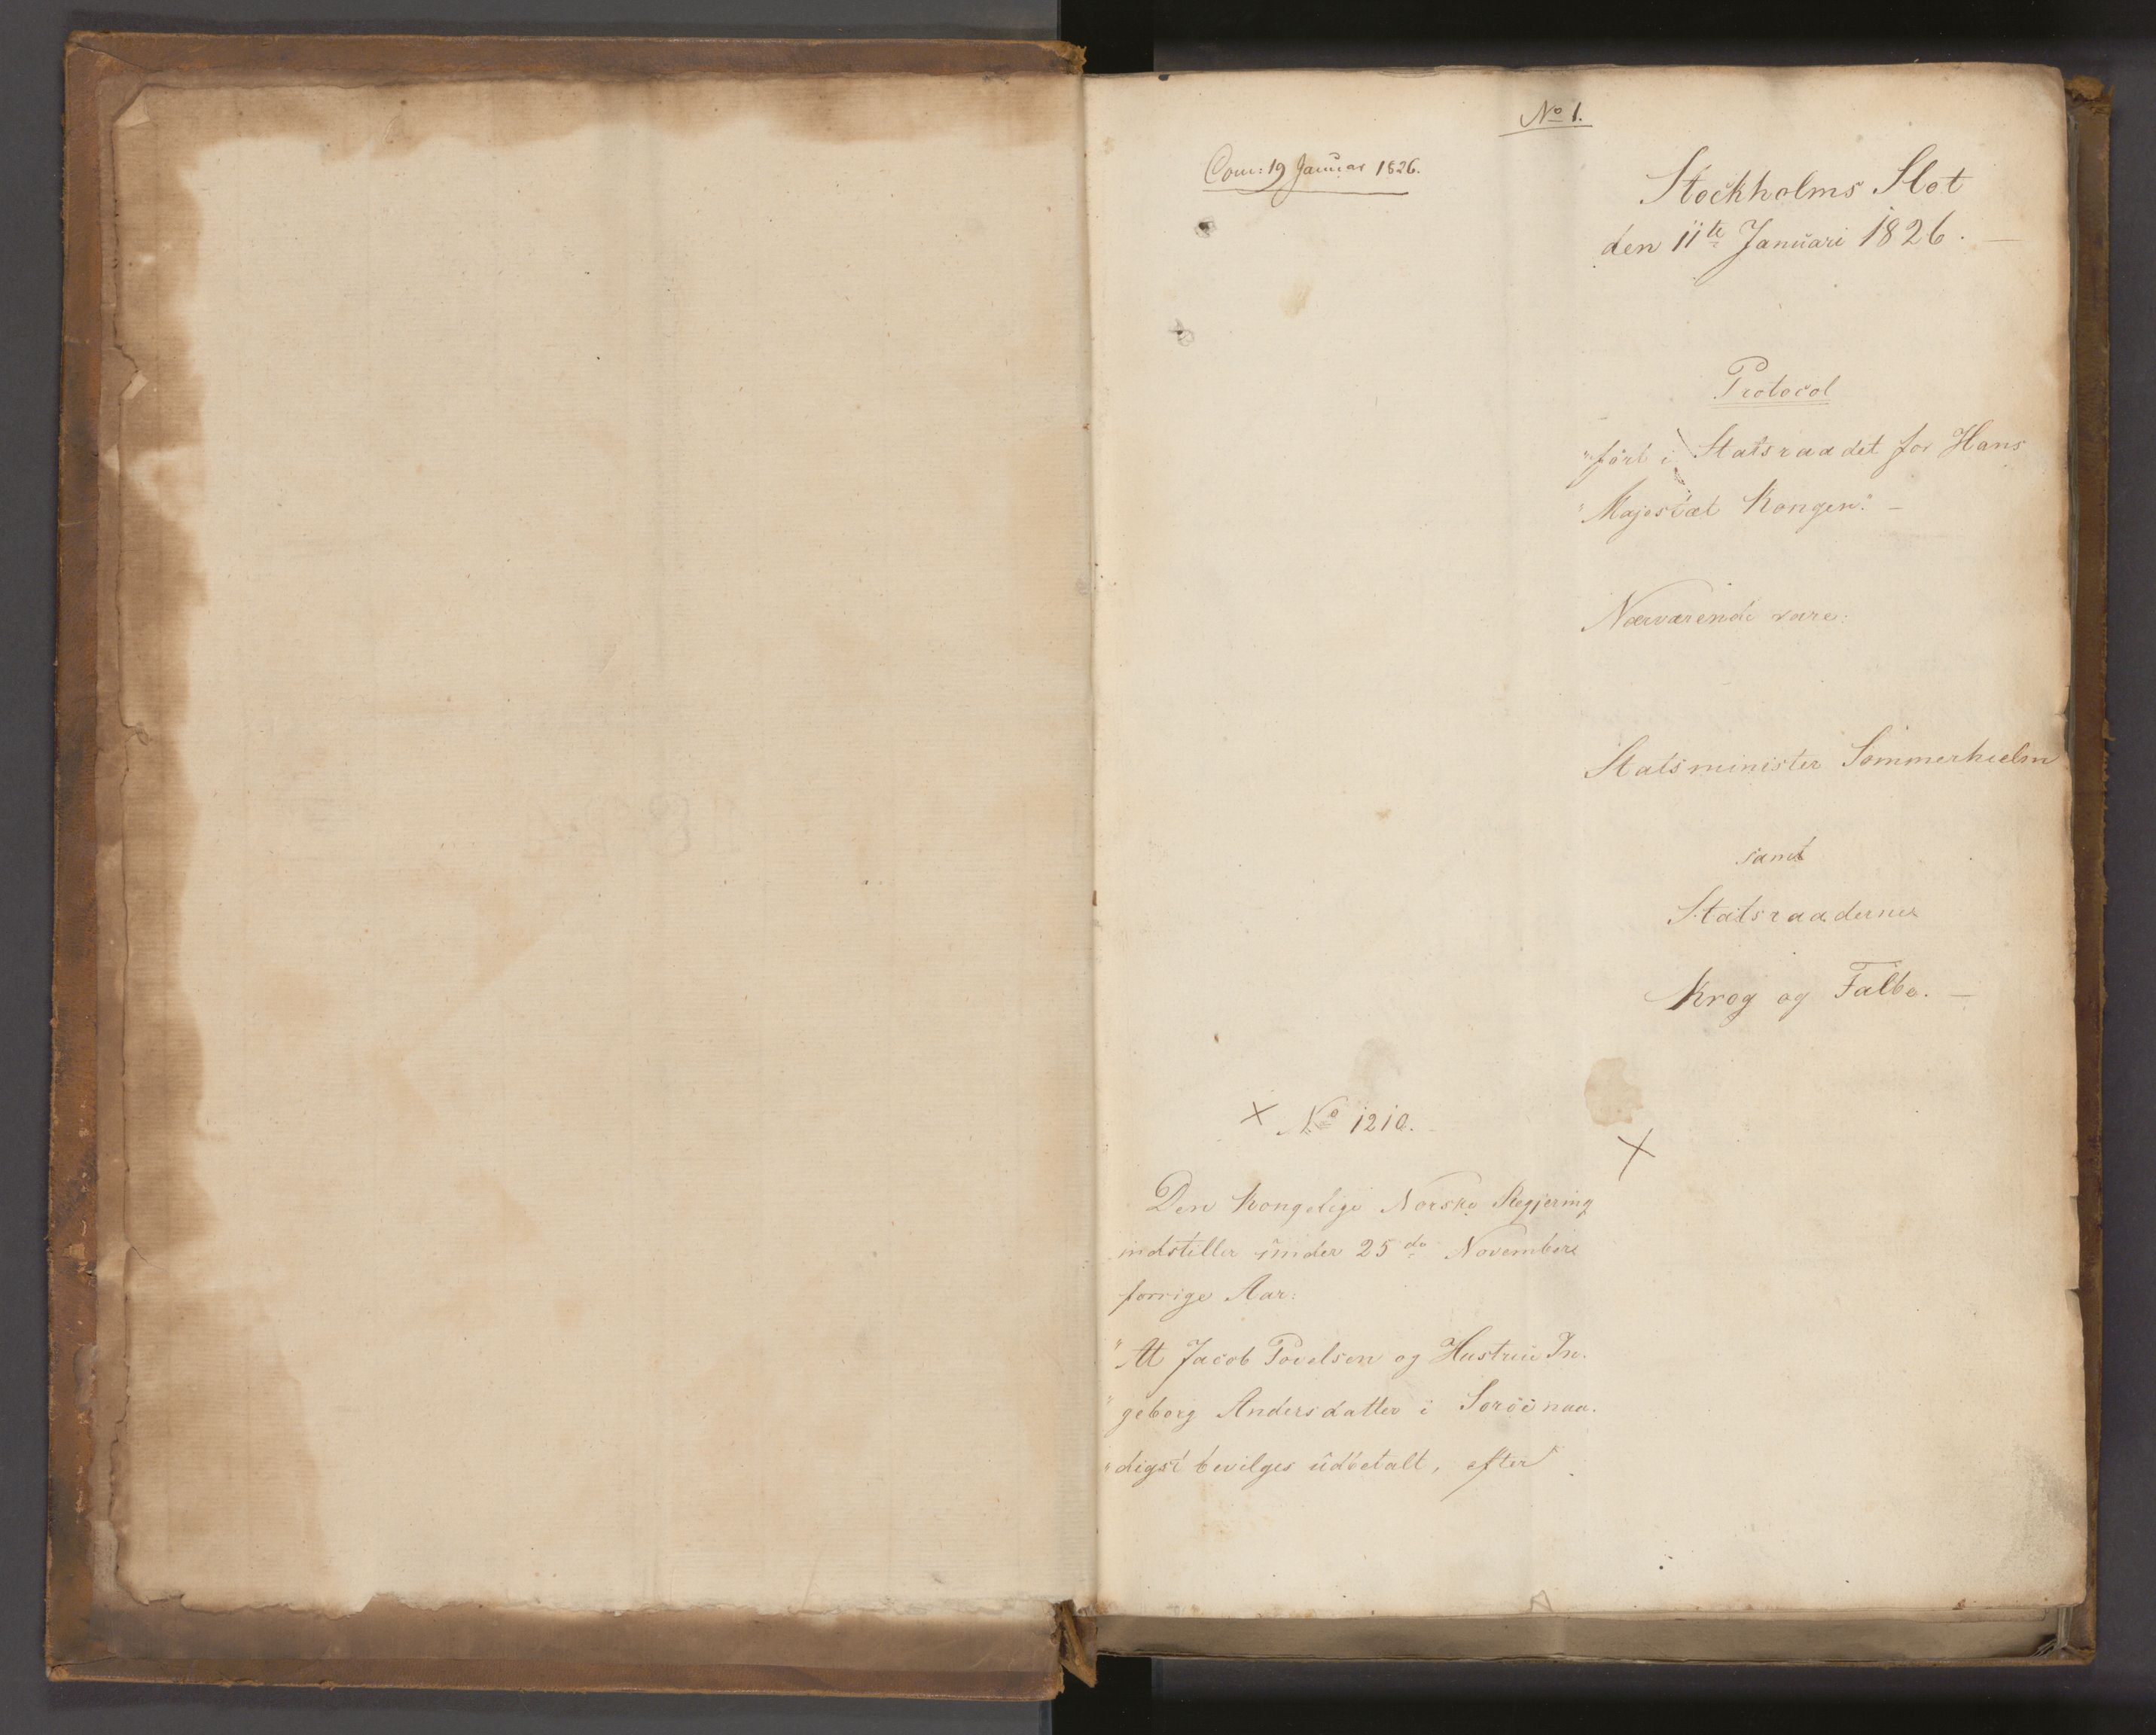 No 1.
Com: 19 Januar 1826.
Stockholms Slot
den 11te Januari 1826. —
Protocol
"ført i Statsraadet for Hans
"Majestæt Kongen." —
Nærværende vare:
Statsminister Sommerhielm
samt
Statsraaderne
Krog og Falbe. —
× No 1210.
×
Den Kongelige Norske Regjering
indstiller under 25de November
forrige Aar:
"At Jacob Povelsen og Hustrue In-
"geborg Andersdatter i Sorøe naa-
"digst bevilges udbetalt, efter